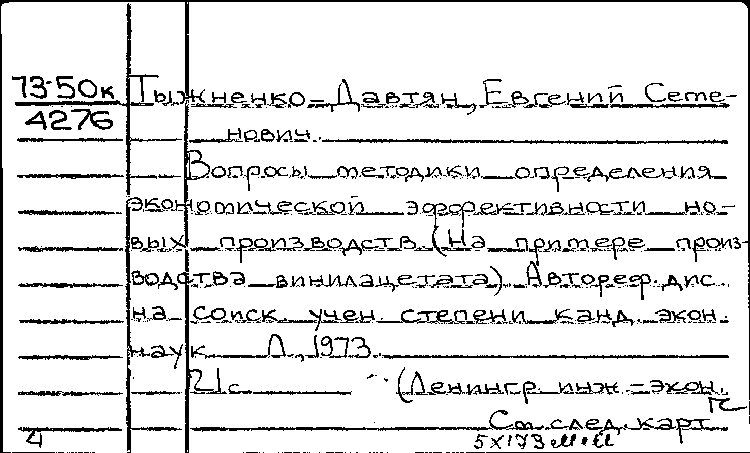 73-50к
4276
Тыжненко-Давтян, Евгений Семе-
нович.
Вопросы методики определения
экономической эффективности но-
вых производств (На примере произ-
водства винилацетата) Автореф. дис.
на соиск. учен. степени канд. экон.
наук Л., 1973.
21с (Ленингр. инж-экон.
См. след. карт
4